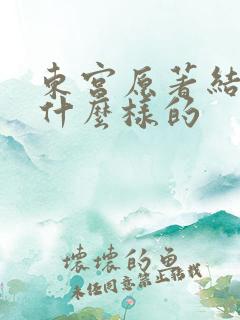 東宮原著結
什麼樣的
壞壞的魚
未经同意禁止轉載